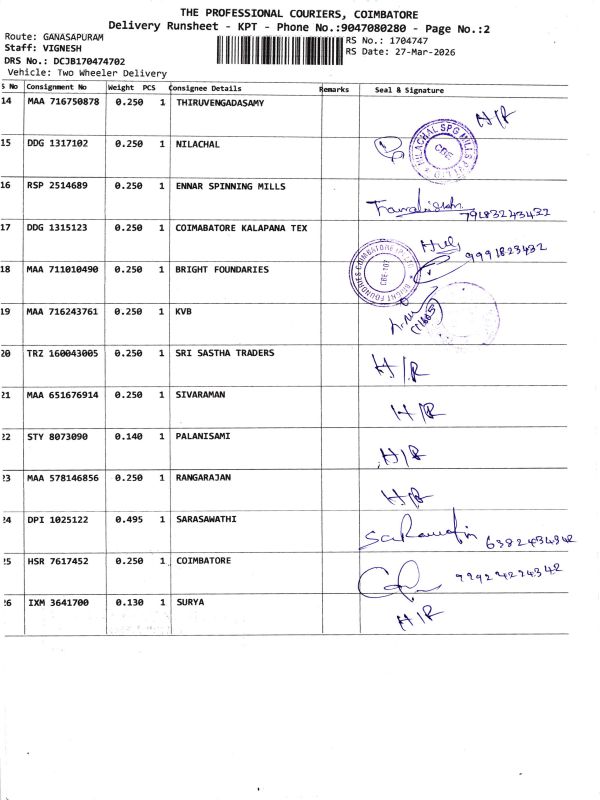 THE PROFESSIONAL COURIERS, COIMBATORE
Delivery Runsheet - KPT - Phone No.:9047080280 - Page No.:2
Route: GANASAPURAM
RS No.: 1704747
Staff: VIGNESH
RS Date: 27-Mar-2026
DRS No.: DCJB170474702
Vehicle: Two Wheeler Delivery
S No Consignment No Weight PCS Consignee Details Remarks Seal & Signature
14 MAA 716750878 0.250 1 THIRUVENGADASAMY H/R
15 DDG 1317102 0.250 1 NILACHAL
NILACHAL SPG MILLS CBE
16 RSP 2514689 0.250 1 ENNAR SPINNING MILLS
17 DDG 1315123 0.250 1 COIMABATORE KALAPANA TEX 9991823432
18 MAA 711010490 0.250 1 BRIGHT FOUNDRIES
BRIGHT FOUNDRIES COIMBATORE
19 MAA 716243761 0.250 1 KVB
20 TRZ 160043005 0.250 1 SRI SASTHA TRADERS H/R
21 MAA 651676914 0.250 1 SIVARAMAN H/R
22 STY 8073090 0.140 1 PALANISAMI H/R
23 MAA 578146856 0.250 1 RANGARAJAN H/R
24 DPI 1025122 0.495 1 SARASAWATHI
25 HSR 7617452 0.250 1 COIMBATORE
26 IXM 3641700 0.130 1 SURYA H/R